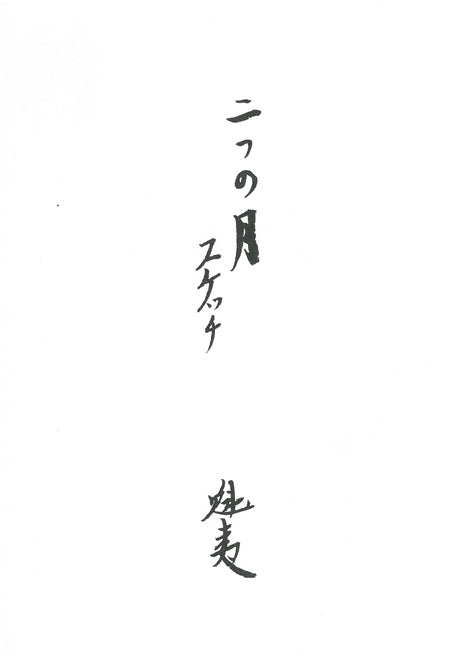 二つの月
スケッチ
魁夷